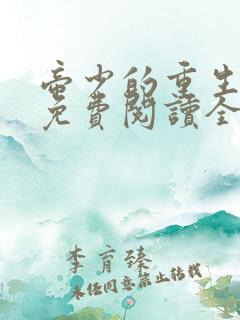 蚕少的重生
免費閱讀全
李育臻
未经同意禁止转载